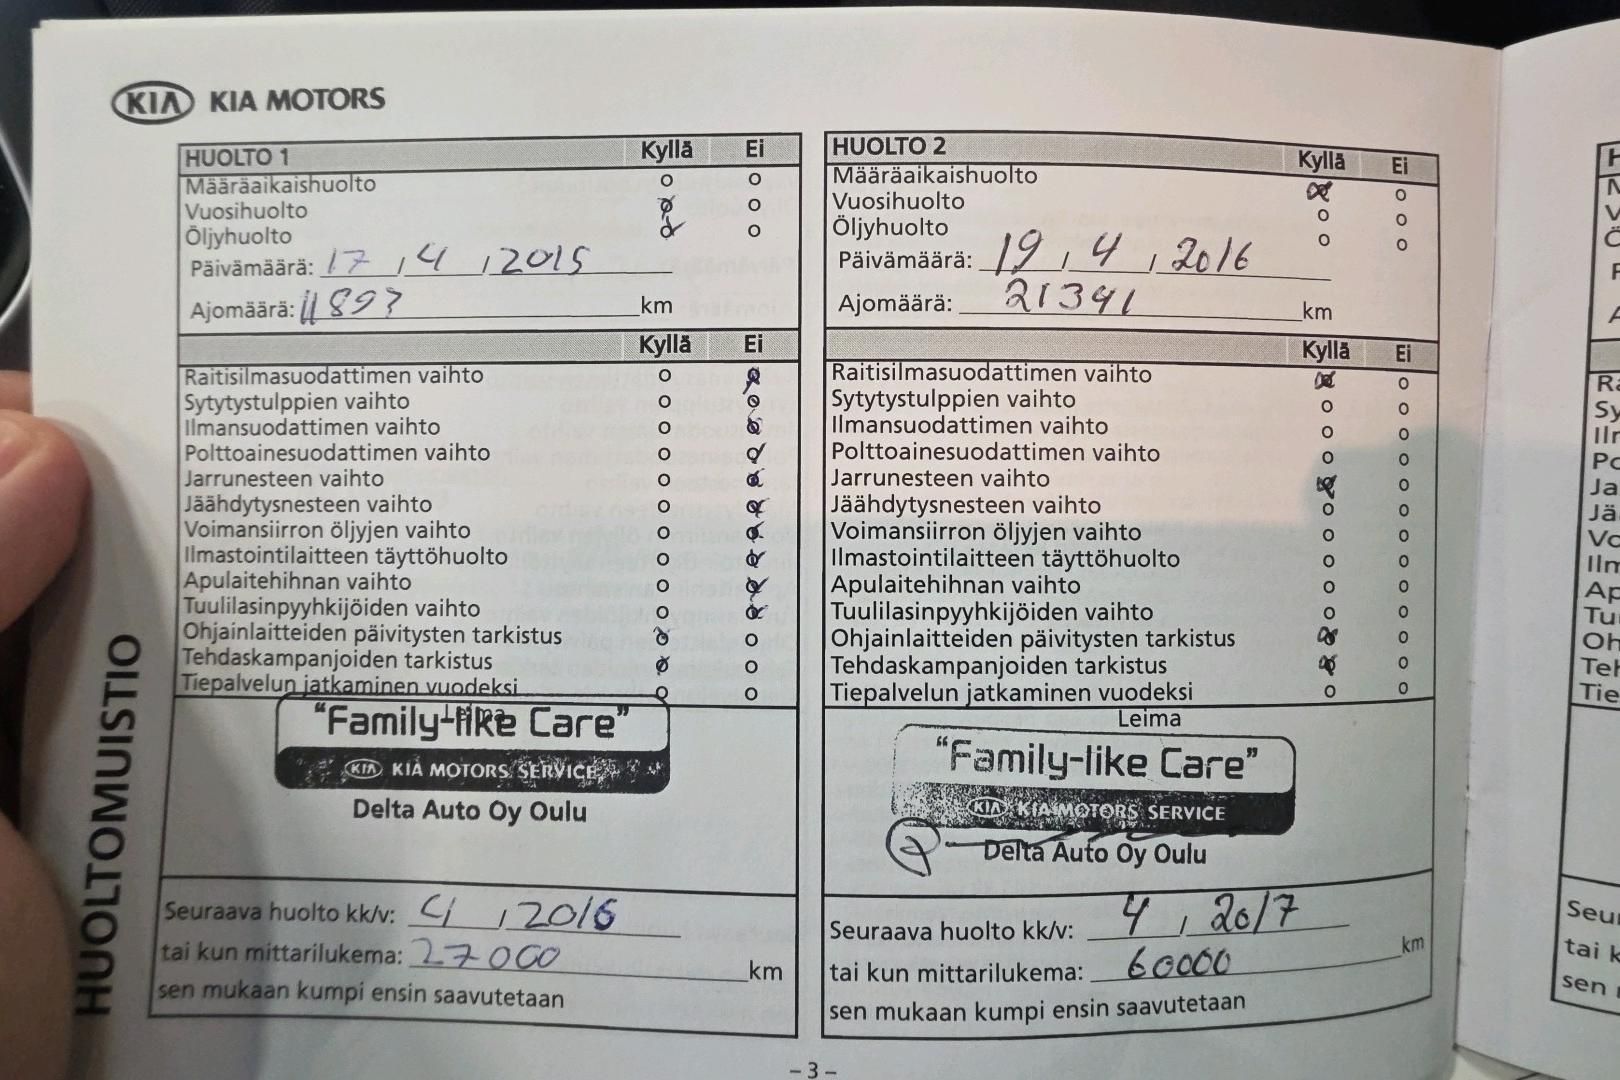 KIA KIA MOTORS
HUOLTO 1 Kyllä Ei
Määräaikaishuolto
Vuosihuolto
Öljyhuolto
Päivämäärä: 17 / 4 / 2015
Ajomäärä: 11893 km
Kyllä Ei
Raitisilmasuodattimen vaihto
Sytytystulppien vaihto
Ilmansuodattimen vaihto
Polttoainesuodattimen vaihto
Jarrunesteen vaihto
Jäähdytysnesteen vaihto
Voimansiirron öljyjen vaihto
Ilmastointilaitteen täyttöhuolto
Apulaitehihnan vaihto
Tuulilasinpyyhkijöiden vaihto
Ohjainlaitteiden päivitysten tarkistus
Tehdaskampanjoiden tarkistus
Tiepalvelun jatkaminen vuodeksi
Leima
“Family-like Care”
KIA KIA MOTORS SERVICE
Delta Auto Oy Oulu
Seuraava huolto kk/v: 4 / 2016
tai kun mittarilukema: 27000 km
sen mukaan kumpi ensin saavutetaan
HUOLTO 2 Kyllä Ei
Määräaikaishuolto
Vuosihuolto
Öljyhuolto
Päivämäärä: 19 / 4 / 2016
Ajomäärä: 21341 km
Kyllä Ei
Raitisilmasuodattimen vaihto
Sytytystulppien vaihto
Ilmansuodattimen vaihto
Polttoainesuodattimen vaihto
Jarrunesteen vaihto
Jäähdytysnesteen vaihto
Voimansiirron öljyjen vaihto
Ilmastointilaitteen täyttöhuolto
Apulaitehihnan vaihto
Tuulilasinpyyhkijöiden vaihto
Ohjainlaitteiden päivitysten tarkistus
Tehdaskampanjoiden tarkistus
Tiepalvelun jatkaminen vuodeksi
Leima
“Family-like Care”
KIA KIA MOTORS SERVICE
Delta Auto Oy Oulu
Seuraava huolto kk/v: 4 / 2017
tai kun mittarilukema: 60000 km
sen mukaan kumpi ensin saavutetaan
HUOLTOMUISTIO
– 3 –